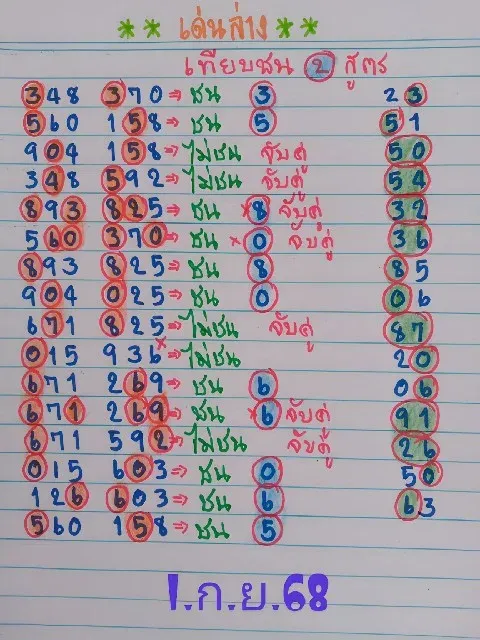 ** เด่นล่าง **
เทียบชน 2 สูตร
348 370 ⇒ ชน 3 23
560 158 ⇒ ชน 5 51
904 158 ⇒ ไม่ชน จับคู่ 50
348 592 ⇒ ไม่ชน จับคู่ 54
893 825 ⇒ ชน *8 จับคู่ 32
560 370 ⇒ ชน *0 จับคู่ 36
893 825 ⇒ ชน 8 85
904 025 ⇒ ชน 0 06
671 825 ⇒ ไม่ชน จับคู่ 87
015 936 × ⇒ ไม่ชน 20
671 269 ⇒ ชน 6 06
671 269 ⇒ ชน *6 จับคู่ 91
671 592 ⇒ ไม่ชน จับคู่ 26
015 603 ⇒ ชน 0 50
126 603 ⇒ ชน 6 63
560 158 ⇒ ชน 5
1.ก.ย.68